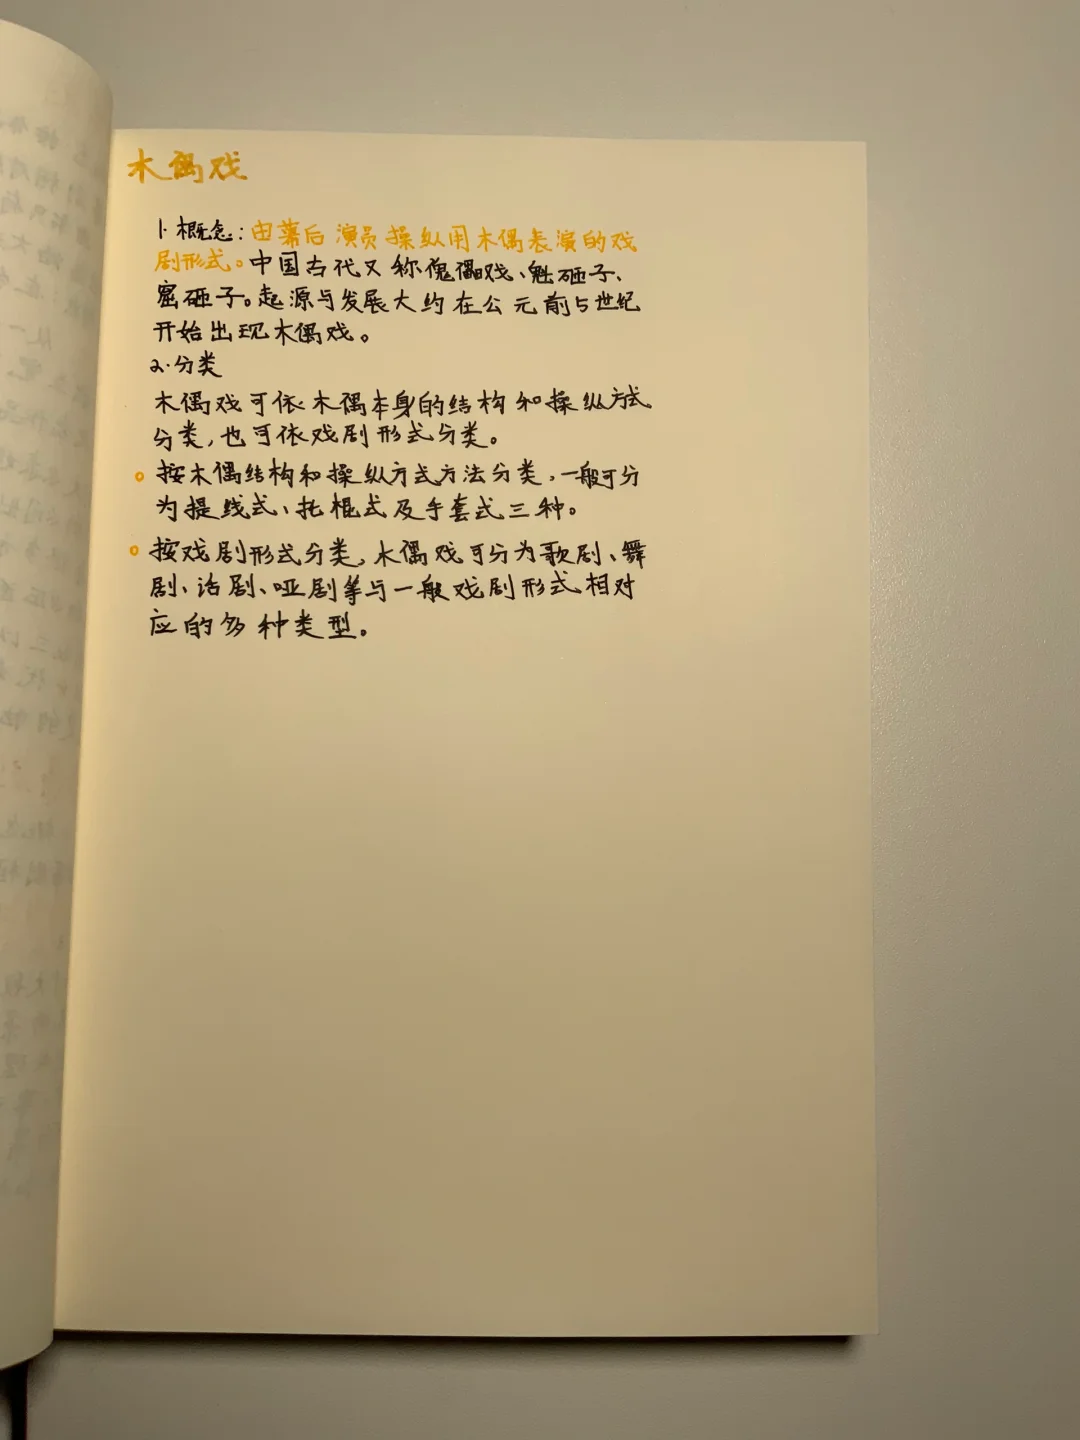 木偶戏
1.概念:由幕后演员操纵用木偶表演的戏
剧形式。中国古代又称傀儡戏、魁砸子、
窟砸子。起源与发展大约在公元前5世纪
开始出现木偶戏。
2.分类
木偶戏可依木偶本身的结构和操纵方式
分类,也可依戏剧形式分类。
按木偶结构和操纵方式方法分类,一般可分
为提线式、托棍式及手套式三种。
按戏剧形式分类,木偶戏可分为歌剧、舞
剧、话剧、哑剧等与一般戏剧形式相对
应的多种类型。